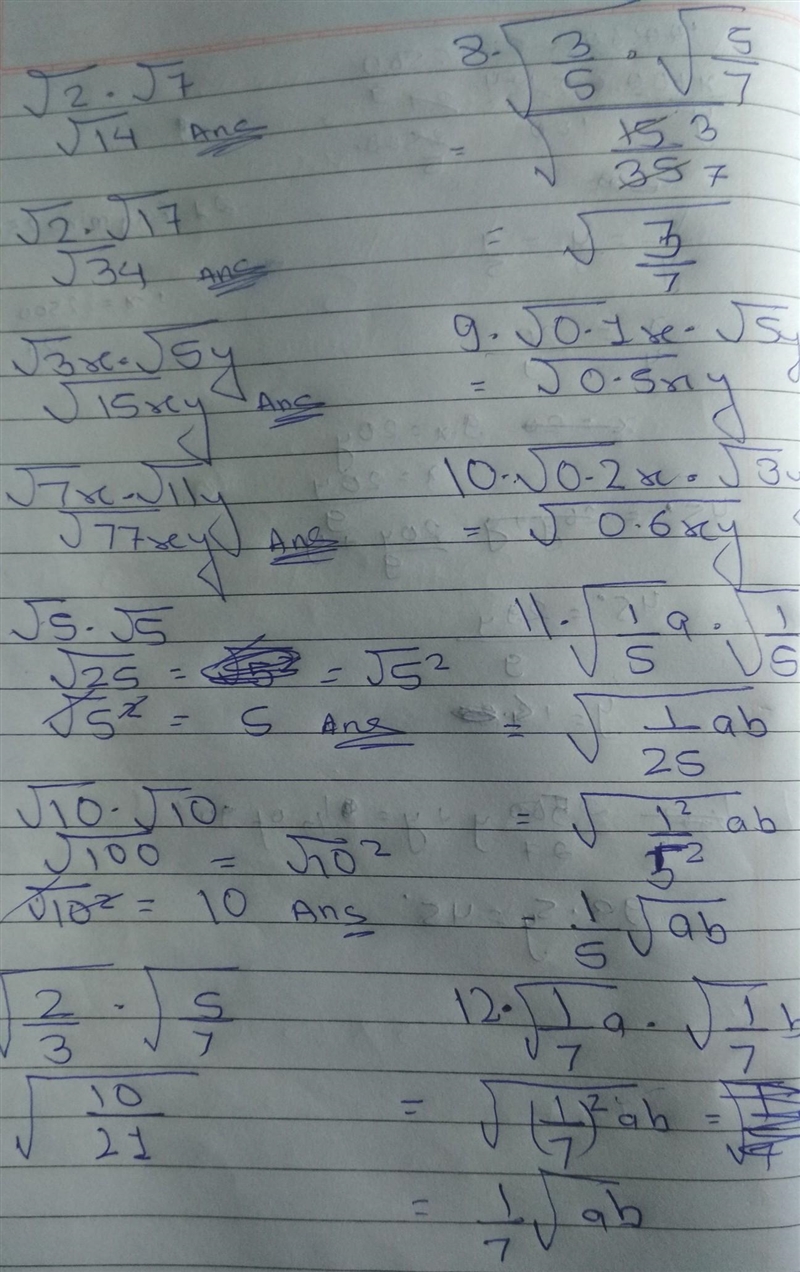 √2 · √7
√14 Ans
√2 · √17
√34 Ans
√3x · √5y
√15xy Ans
√7x · √11y
√77xy Ans
√5 · √5
√25 = = √5²
√5² = 5 Ans
√10 · √10
√100 = √10²
√10² = 10 Ans
√2/3 · √5/7
√10/21
8. √3/5 · √5/7
= √15/35 3/7
= √3/7
9. √0.1x · √5y
= √0.5xy
10. √0.2x · √3y
= √0.6xy
11. √1/5 a · √1/5
= √1/25 ab
= √1²/5² ab
= 1/5 √ab
12. √1/7 a · √1/7 b
= √(1/7)² ab =
= 1/7 √ab